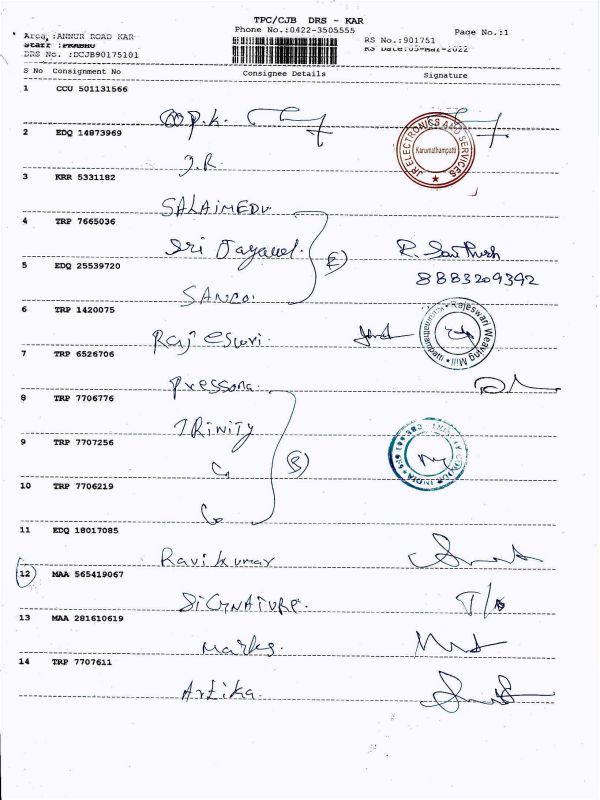 TPC/CJB DRS - KAR
Phone No.:0422-3505555 Page No.:1
Area :ANNUR ROAD KAR RS No.:901751
Staff :PRABHU RS Date:05-Mar-2022
DRS No. :DCJB90175101
S No Consignment No Consignee Details Signature
1 CCU 501131566
P.K.
2 EDQ 14873969
J.R.
JR ELECTRONICS AND SERVICES
Karumathampatti
3 KRR 5331182
SALAIMEDU
4 TRP 7665036
Sri
R. Santhosh
5 EDQ 25539720
8883209392
6 TRP 1420075
Rajeswari Weaving Mill
Rajeswari
7 TRP 6526706
Pressona
8 TRP 7706776
TRINITY
9 TRP 7707256
10 TRP 7706219
11 EDQ 18017085
Ravikumar
12 MAA 565419067
SIGNATURE
13 MAA 281610619
Marks.
14 TRP 7707611
Artika